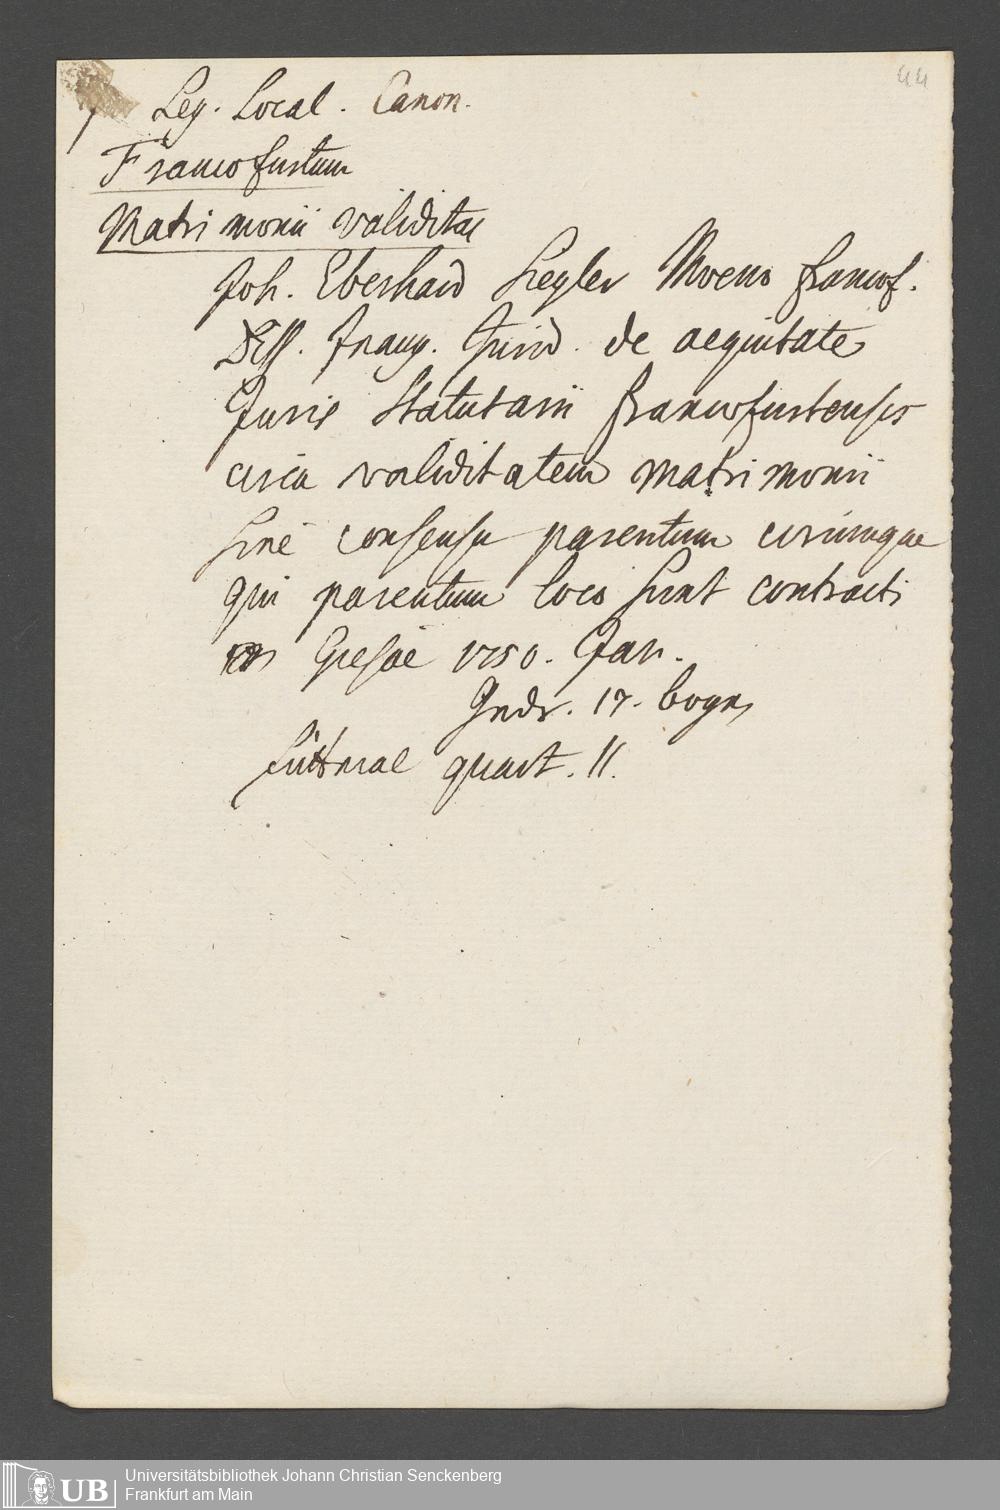 44
Leg. Local. Canon.
Francofurtum
Matrimonii validitas
Joh. Eberhard Siegler Moeno francof.
Diss. Inaug. Jurid. de aequitate
Juris Statutarii francofurtensis
circa validitatem matrimonii
sine consensu parentum eorumque
qui parentum loco sunt contracti
Giesae 1750. Jan.
17. bogn
quart. 11.
Universitätsbibliothek Johann Christian Senckenberg
Frankfurt am Main
UB